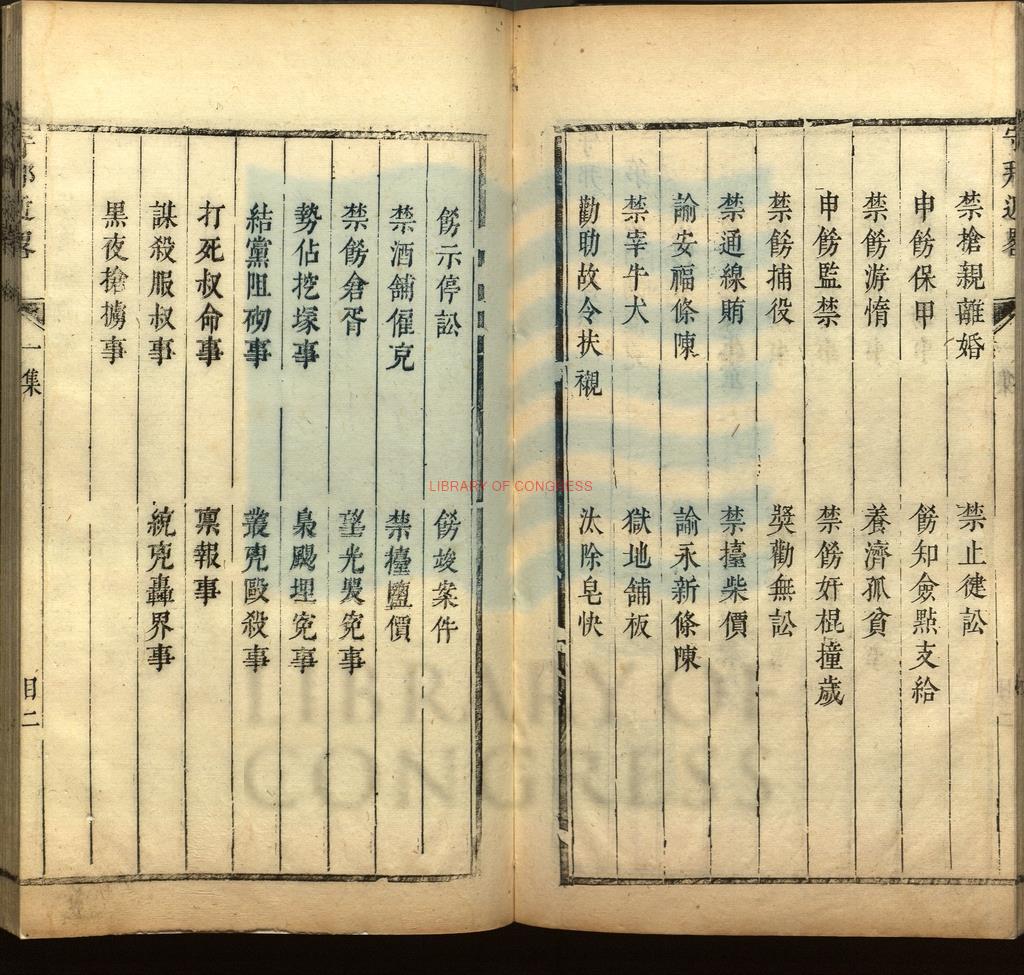 禁搶親離婚　禁止徤訟
申飭保甲　飭知僉㸃支給
禁飭游惰　養濟孤貧
申飭監禁　禁飭奸棍撞歲
禁飭捕役　奨勸無訟
禁通線賄　禁擡柴價
諭安福條陳　諭永新條陳
禁宰牛犬　獄地舖板
勸助故令扶櫬　汰除皂快
飭示停訟　飭竣案件
禁酒舖僱克　禁擡鹽價
禁飭倉胥　望光𤼵寃事
勢佔挖塚事　梟颺埋寃事
結黨阻砌事　叢兇毆殺事
打死叔命事　禀報事
謀殺服叔事　統兇轟界事
黒夜搶擄事
一集
目二
LIBRARY OF CONGRESS